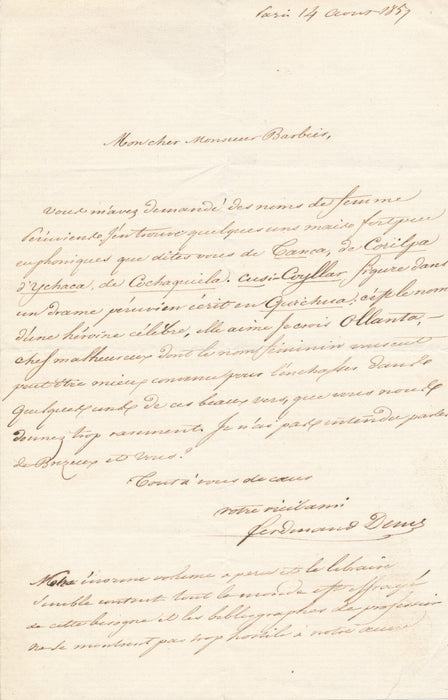 Paris 14 aout 1857
Mon cher Monsieur Barbier,
Vous m'avez demandé des noms de femme
Péruviende j'en trouve quelques uns mais fort peu
euphoniques que dites vous de Canca, de Corilpa
d'Ychaca, de Cochaquila. Cusi-Coyllar figure dans
un drame péruvien écrit en Quichua; c'est le nom
d'une héroine célèbre, elle aime je crois Ollanta,
chef malheureux dont le nom féminin
peut être mieux connu pour dans
quelques unes de ces beaux vers, que vous nous
donnez trop rarement. Je n'ai pas entendu parler
de Brizeux et vous?
Tout à vous de cœur
votre vieil ami
Ferdinand Denis
Notre énorme volume a paru et le libraire
semble content tout le monde est effrayé
de cette besogne et les bibliographes de profession
ne se montrent pas trop hostile à notre œuvre